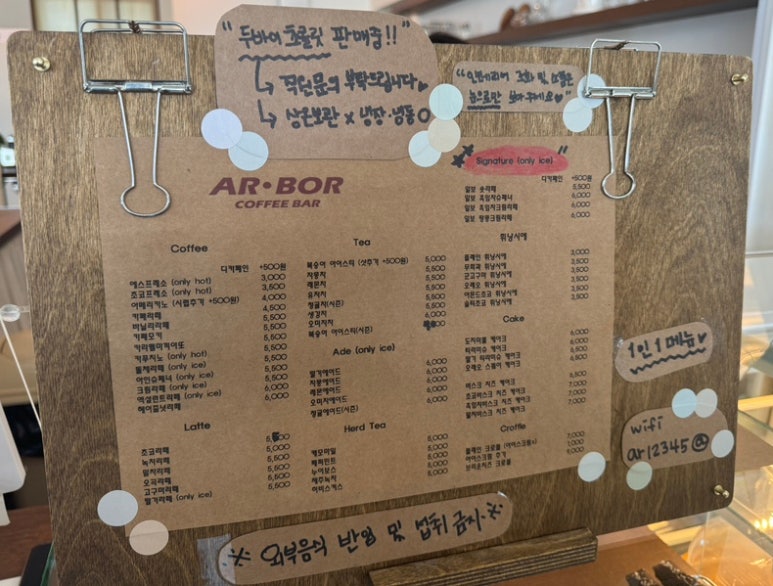 "두바이 초콜릿 판매중!!"
→ 직원문의 부탁드립니다♥
→ 상온보관 x 냉장·냉동 O
"인테리어 조화 및 소품은
눈으로만 봐주세요♥"
AR·BOR
COFFEE BAR
Signature (only ice)
디카페인 +500원
5,500
6,000
6,000
6,000
Coffee
디카페인 +500원
에스프레소 (only hot) 3,000
초코프레소 (only hot) 3,500
아메리카노 (시럽추가 +500원) 4,000
카페라떼 4,500
바닐라라떼 5,500
카페모카 5,500
카라멜마끼아또 5,500
카푸치노 (only hot) 5,500
돌체라떼 (only ice) 5,500
아인슈페너 (only ice) 5,500
크림라떼 (only ice) 6,000
헤이즐넛라떼
Latte
초코라떼
녹차라떼 5,500
5,500
오곡라떼 5,500
고구마라떼 5,500
딸기라떼 (only ice)
Tea
복숭아 아이스티 (샷추가 +500원) 5,000
자몽차 5,500
레몬차 5,500
유자차 5,500
청귤차(시즌) 5,500
생강차 6,000
오미자차
복숭아 아이스티(시즌)
Ade (only ice)
딸기에이드 6,000
자몽에이드 6,000
레몬에이드 6,000
오미자에이드 6,000
청귤에이드(시즌) 6,000
Herd Tea
캐모마일 5,000
페퍼민트 5,000
루이보스 5,000
제주녹차 5,000
얼그레이 5,000
휘낭시에
플레인 휘낭시에 3,000
무화과 휘낭시에 3,500
군고구마 휘낭시에 3,500
오레오 휘낭시에 3,500
아몬드초코 휘낭시에 3,500
솔티초코 휘낭시에 3,500
Cake
티라미슈 케이크
오레오 스틱 케이크
바스크 치즈 케이크 6,500
초코바스크 치즈 케이크 7,000
흑임자바스크 치즈 케이크 7,000
말차바스크 치즈 케이크 7,000
Croffle
플레인 크로플 (아이스크림x)
아이스크림 추가
브라운치즈 크로플
1인 1메뉴♥
wifi
ar12345@
※외부음식 반입 및 섭취 금지※